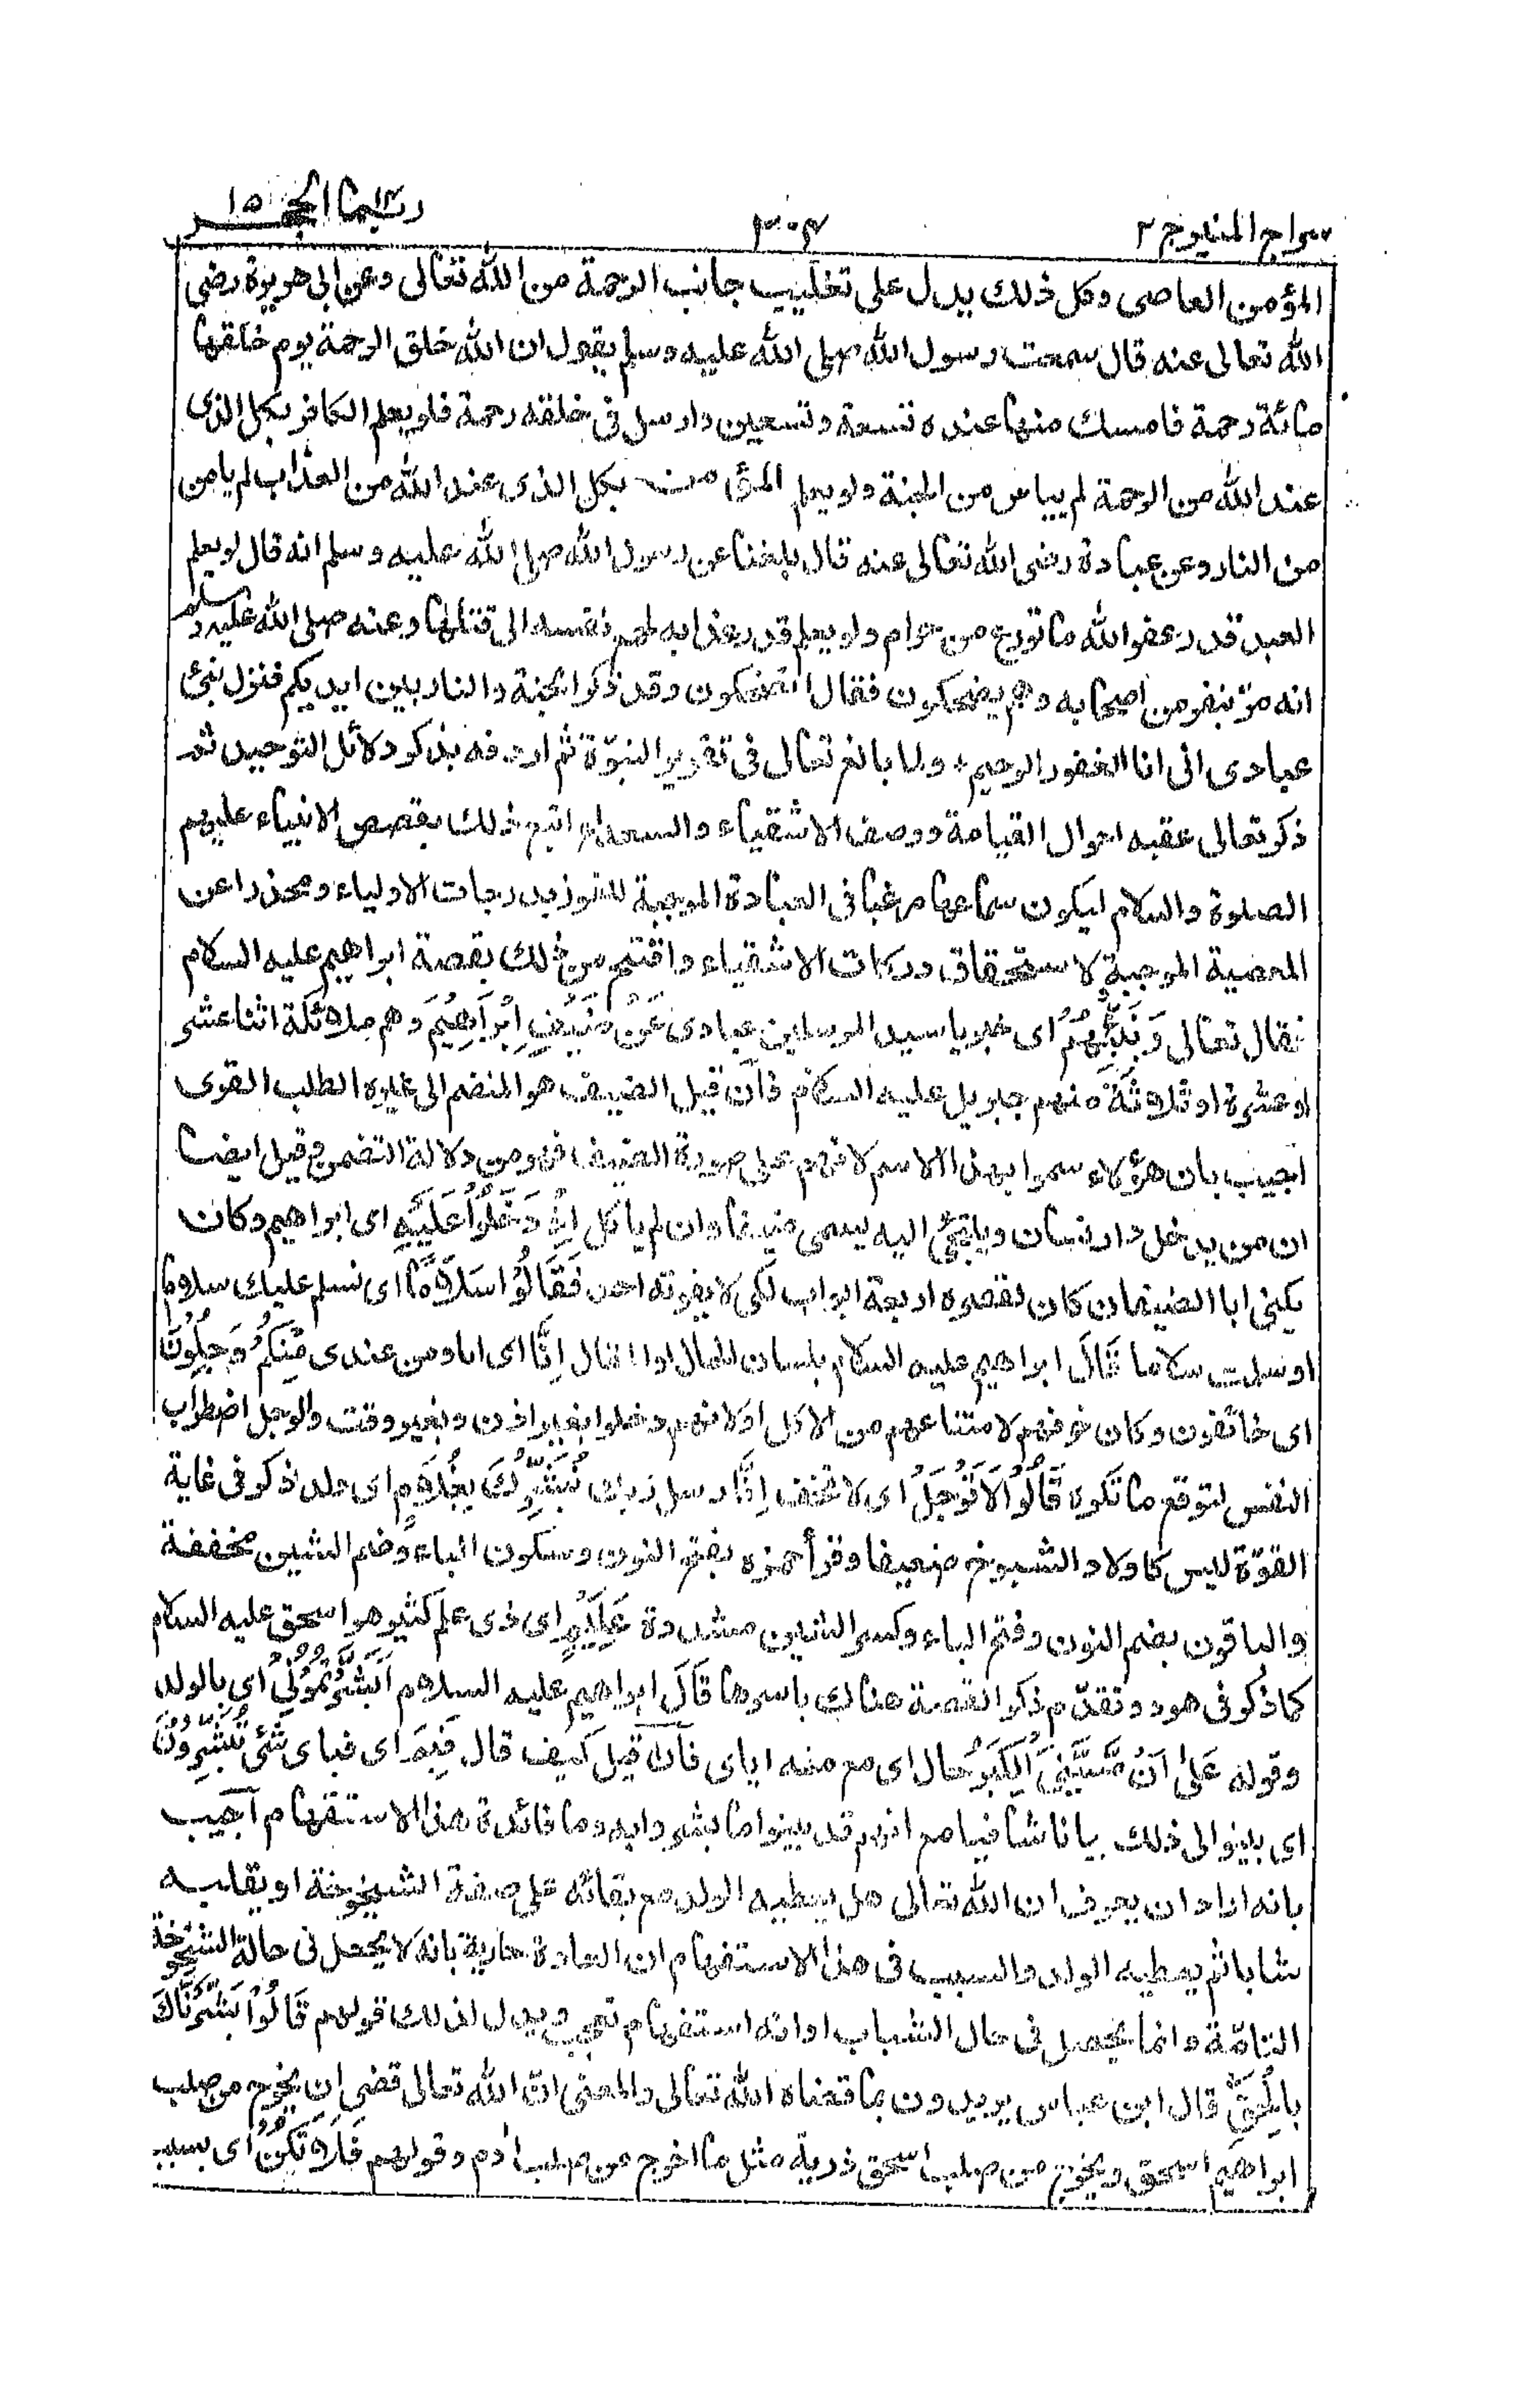 سراج المنير ج ٢
٣٠٤
ربما الحجر ١٥
المؤمن العاصى وكل ذلك يدل على تغليب جانب الرحمة من الله تعالى وعن ابى هريرة رضى
الله تعالى عنه قال سمعت رسول الله صلى الله عليه وسلم يقول ان الله خلق الرحمة يوم خلقها
مائة رحمة فامسك منها عنده تسعة وتسعين وارسل فى خلقه رحمة فلو يعلم الكافر بكل الذى
عند الله من الرحمة لم ييأس من الجنة ولو يعلم المؤمن بكل الذى عند الله من العذاب لم يامن
من النار وعن عبادة رضى الله تعالى عنه قال بلغنا عن رسول الله صلى الله عليه وسلم انه قال لو يعلم
العبد قدر عفو الله ما تورع من حرام ولو يعلم قدر عذابه نفسه الى قتلها وعنه صلى الله عليه وسلم
انه مرّ بنفر من اصحابه وهم يضحكون فقال اتضحكون وقد ذكر الجنة والنار بين ايديكم فنزل نبئ
عبادى انى انا الغفور الرحيم ولما بالغ تعالى فى تقرير النبوّة ثم اردفه بذكر دلائل التوحيد ثم
ذكر تعالى عقبه احوال القيامة ووصف الاشقياء والسعداء اتبع ذلك بقصص الانبياء عليهم
الصلوة والسلام ليكون سماعها مرغبا فى العبادة الموجبة للفوز بدرجات الاولياء ومحذرا عن
المعصية الموجبة لاستحقاق دركات الاشقياء وافتتح من ذلك بقصة ابراهيم عليه السلام
فقال تعالى وَنَبِّئْهُمْ اى خبر يا سيد المرسلين عبادى عَنْ ضَيْفِ اِبْرَاهِيْمَ وهم ملائكة اثنا عشر
او عشرة او ثلاثة منهم جبريل عليه السلام فان قيل الضيف هو المنضم الى غيره لطلب القرى
اجيب بان هؤلاء سموا بهذا الاسم لانهم على صورة الضيف فهو من دلالة التضمن وقيل ايضا
ان من يدخل دار انسان ويلتجئ اليه يسمى ضيفا وان لم ياكل اِذْ دَخَلُوْا عَلَيْهِ اى ابراهيم وكان
يكنى ابا الضيفان كان لقصره اربعة ابواب لكى لا يفوته احد فَقَالُوْا سَلَامًا اى نسلم عليك سلاما
او سلمت سلاما قَالَ ابراهيم عليه السلام بلسان الحال او المقال اِنَّا اى انا ومن عندى مِنْكُمْ وَجِلُوْنَ
اى خائفون وكان خوفهم لامتناعهم من الاكل او لانهم دخلوا بغير اذن وبغير وقت والوجل اضطراب
النفس لتوقع ما تكره قَالُوْا لَا تَوْجَلْ اى لا تخف اِنَّا رسل ربك نُبَشِّرُكَ بِغُلَامٍ اى ولد ذكر فى غاية
القوّة ليس كاولاد الشيوخ ضعيفا وقرأ حمزه بفتح النون وسكون الباء وضم الشين مخففة
والباقون بضم النون وفتح الباء وكسر الشين مشددة عَلِيْمٍ اى ذى علم كثير هو اسحق عليه السلام
كما ذكر فى هود وتقدّم ذكر القصة هناك باسرها قَالَ ابراهيم عليه السلام اَبَشَّرْتُمُوْنِيْ اى بالولد
وقوله عَلٰى اَنْ مَّسَّنِيَ الْكِبَرُ حال اى مع مسه اياى فان قيل كيف قال فَبِمَ اى فباى شئ تُبَشِّرُوْنَ
اى بينوا لى ذلك بيانا شافيا مع انهم قد بينوا ما بشروا به وما فائدة هذا الاستفهام اجيب
بانه اراد ان يعرف ان الله تعالى هل يعطيه الولد مع بقائه على صفة الشيخوخة او يقلبه
شابا ثم يعطيه الولد والسبب فى هذا الاستفهام ان العادة جارية بانه لا يحصل فى حالة الشيخوخة
التامّة وانما يحصل فى حال الشباب او انه استفهام تعجب ويدل لذلك قولهم قَالُوْا بَشَّرْنَاكَ
بِالْحَقِّ قال ابن عباس يريدون بما قضاه الله تعالى والمعنى انّ الله تعالى قضى ان يخرج من صلب
ابراهيم اسحق ويخرج من صلب اسحق ذرية مثل ما اخرج من صلب اٰدم وقولهم فَلَا تَكُنْ اى بسبب